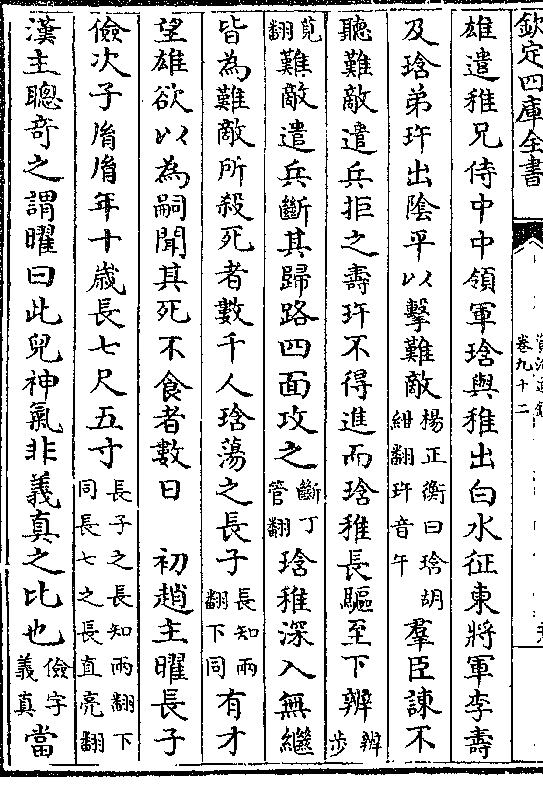 欽定四庫全書
資治通鑑
卷九十二
雄遣稚兄侍中中領軍琀與稚出白水征東將軍李壽
及琀弟玝出陰平以擊難敵楊正衡曰琀胡紺翻玝音午羣臣諫不
聽難敵遣兵拒之壽玝不得進而琀稚長驅至下辨辨步
莧翻難敵遣兵斷其歸路四面攻之斷丁管翻琀稚深入無繼
皆為難敵所殺死者數千人琀蕩之長子長知兩翻下同有才
望雄欲以為嗣聞其死不食者數日　初趙主曜長子
儉次子胤胤年十歲長七尺五寸長子之長知兩翻下同長七之長直亮翻
漢主聰奇之謂曜曰此兒神氣非義真之比也儉字義真當